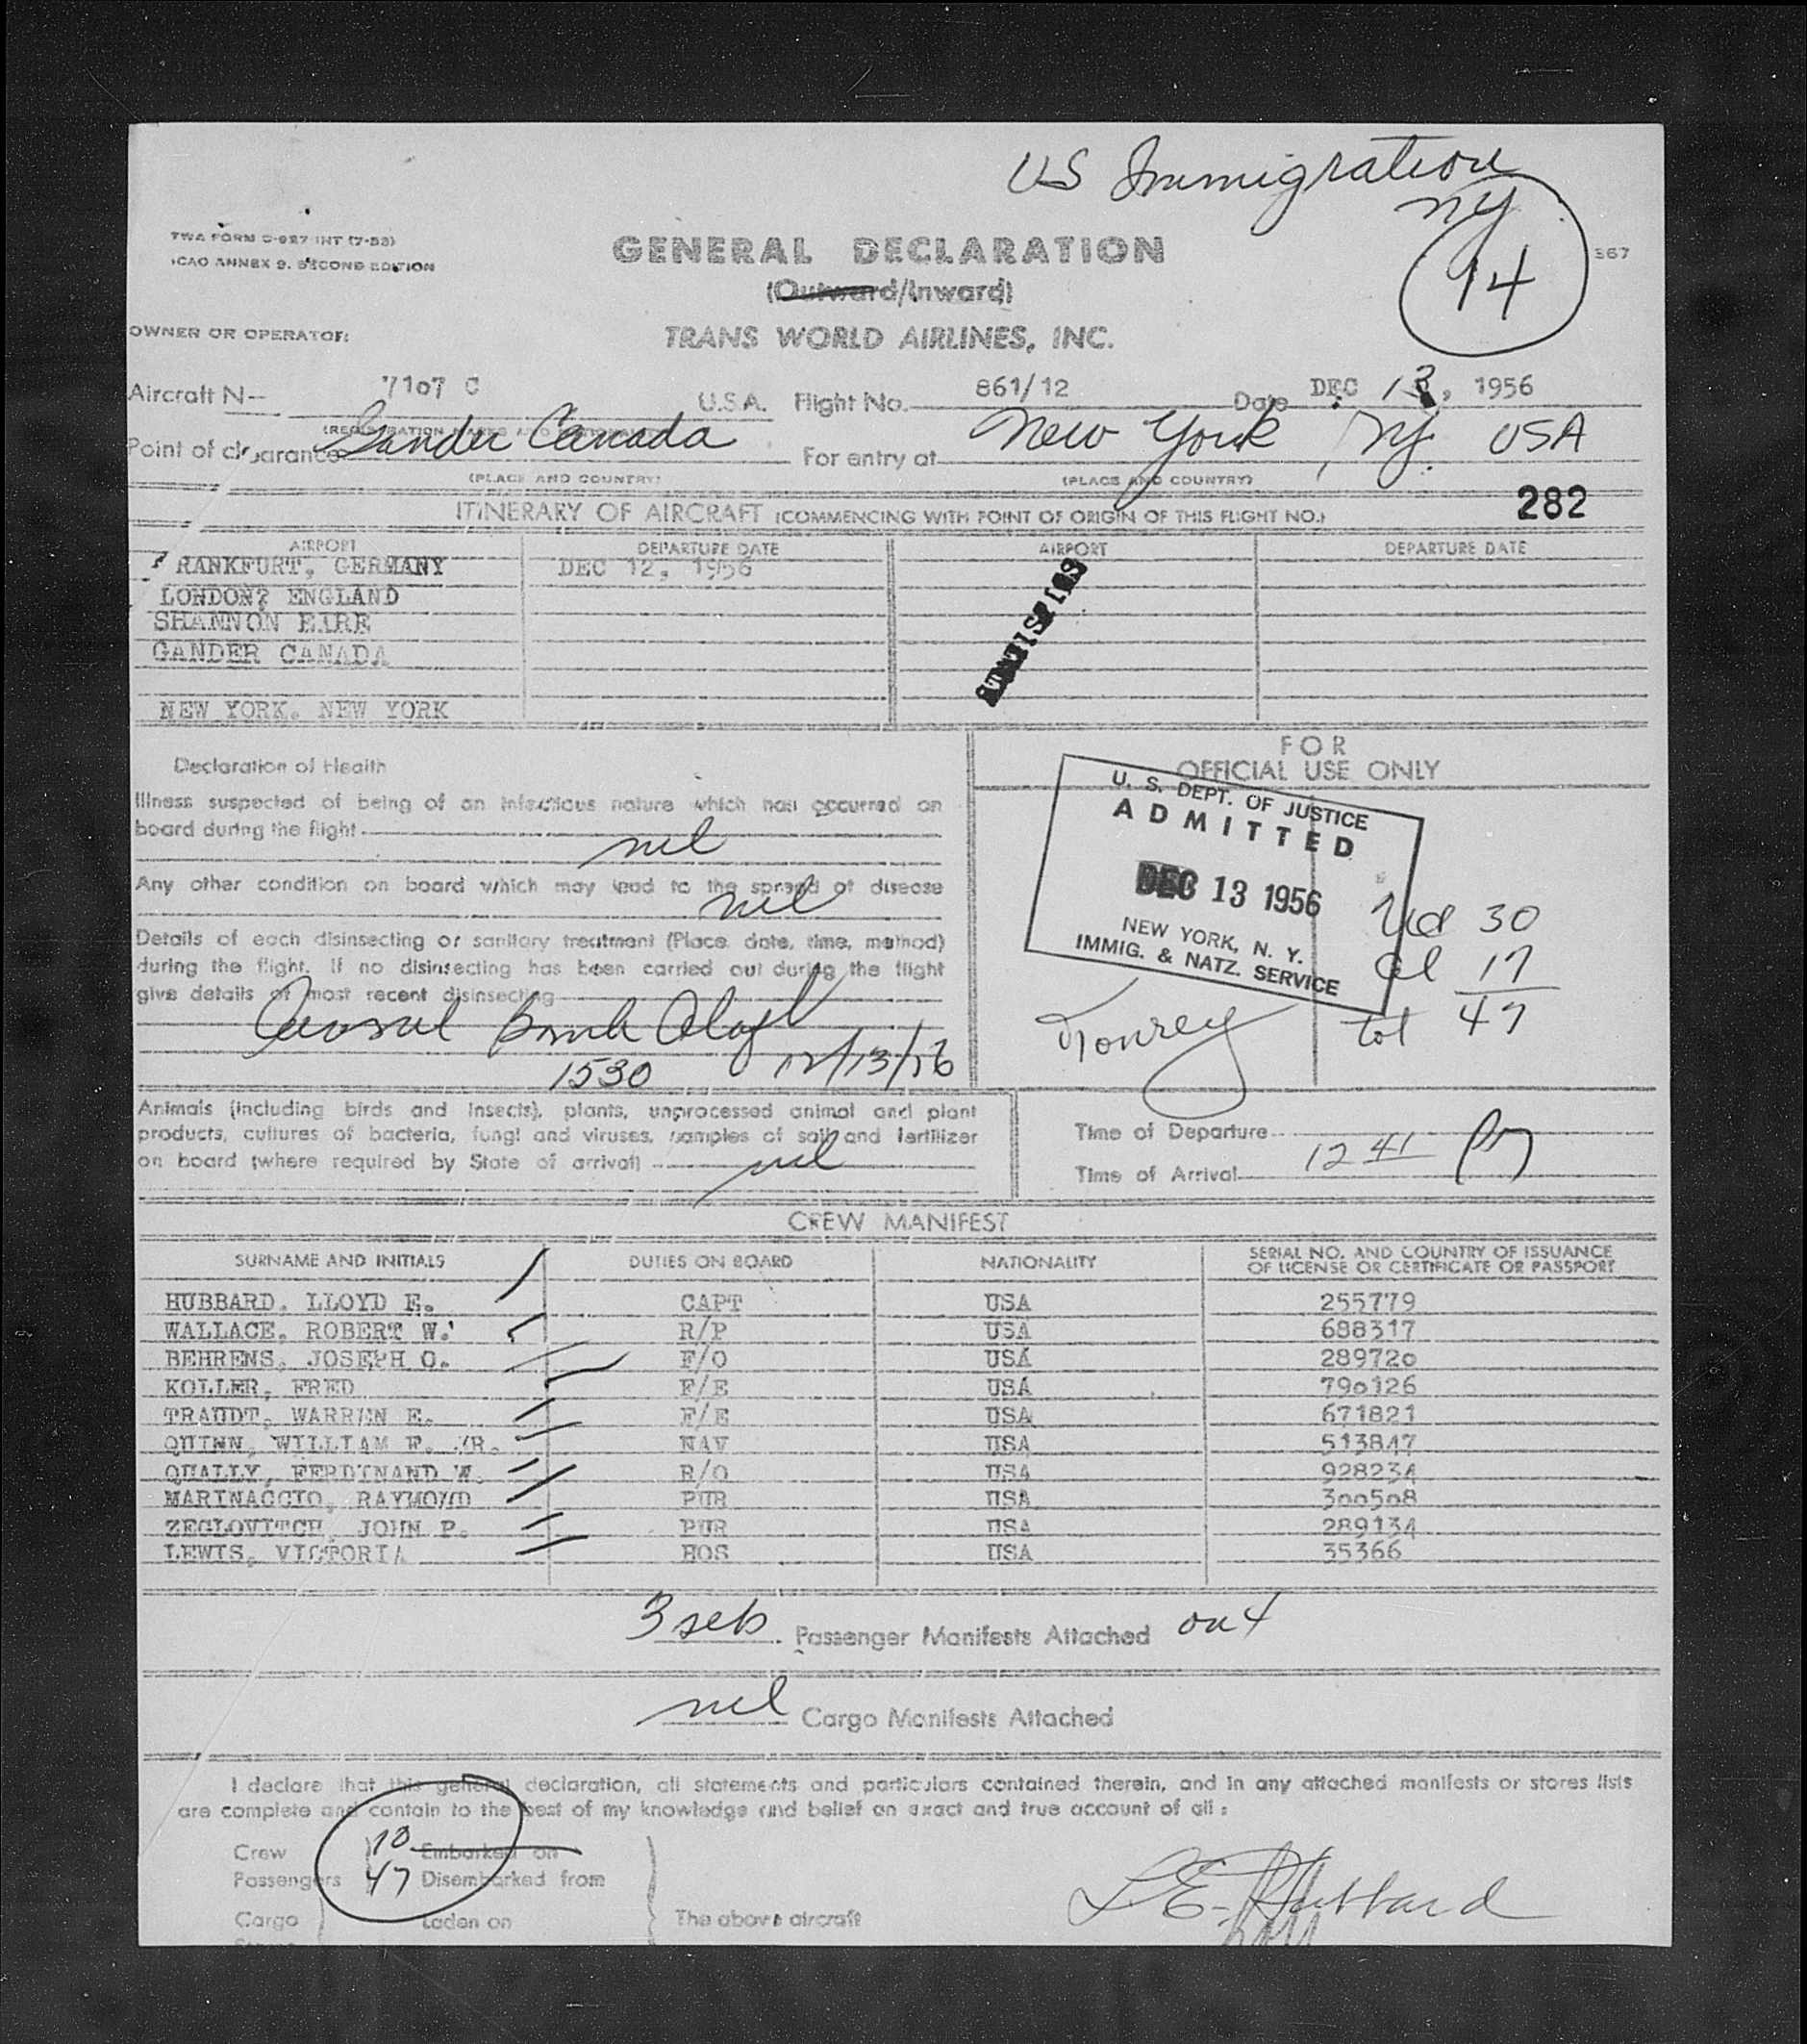 US Immigration
NY
TWA FORM C-927 INT (7-53)
ICAO ANNEX 9. SECOND EDITION
GENERAL DECLARATION
14
367
(Outward/Inward)
OWNER OR OPERATOR:
TRANS WORLD AIRLINES, INC.
Aircraft N-- 7107 C U.S.A. Flight No. 861/12 Date DEC 13, 1956
(REGISTRATION MARKS AND
Point of clearance Gander Canada For entry at New York, NY. USA
(PLACE AND COUNTRY) (PLACE AND COUNTRY)
282
ITINERARY OF AIRCRAFT (COMMENCING WITH POINT OF ORIGIN OF THIS FLIGHT NO.)
AIRPORT DEPARTURE DATE AIRPORT DEPARTURE DATE
FRANKFURT, GERMANY DEC 12, 1956
LONDON? ENGLAND
SHANNON EIRE
GANDER CANADA
NEW YORK. NEW YORK
Declaration of Health
FOR
OFFICIAL USE ONLY
Illness suspected of being of an infectious nature which has occurred on
board during the flight
nil
Any other condition on board which may lead to the spread of disease
nil
Details of each disinsecting or sanitary treatment (Place, date, time, method)
during the flight. If no disinsecting has been carried out during the flight
give details of most recent disinsecting
Aerosol Bomb
1530 12/13/56
U. S. DEPT. OF JUSTICE
ADMITTED
DEC 13 1956
NEW YORK, N. Y.
IMMIG. & NATZ. SERVICE
30
al 17
tot 47
Animals (including birds and insects), plants, unprocessed animal and plant
products, cultures of bacteria, fungi and viruses, samples of soil and fertilizer
on board (where required by State of arrival)
nil
Time of Departure
Time of Arrival 12 41 PM
CREW MANIFEST
SURNAME AND INITIALS DUTIES ON BOARD NATIONALITY SERIAL NO. AND COUNTRY OF ISSUANCE
OF LICENSE OR CERTIFICATE OR PASSPORT
HUBBARD, LLOYD E. CAPT USA 255779
WALLACE, ROBERT W. R/P USA 688317
BEHRENS, JOSEPH O. F/O USA 289720
KOLLER, FRED F/E USA 790126
TRAUDT, WARREN E. F/E USA 671821
QUINN, WILLIAM F. JR. NAV USA 513847
QUALLY, FERDINAND W. R/O USA 928234
MARINACCIO, RAYMOND PUR USA 300508
ZEGLOVITCH, JOHN P. PUR USA 289134
LEWIS, VICTORIA HOS USA 35366
3 sets Passenger Manifests Attached
nil Cargo Manifests Attached
I declare that this general declaration, all statements and particulars contained therein, and in any attached manifests or stores lists
are complete and contain to the best of my knowledge and belief an exact and true account of all:
Crew 10 Embarked on
Passengers 47 Disembarked from
Cargo Laden on The above aircraft
L E. Hubbard